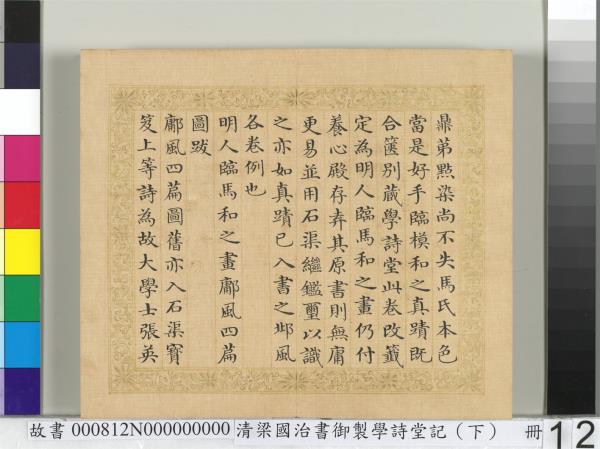 鼎第點染尚不失馬氏本色
當是好手臨模和之真蹟既
合篋別藏學詩堂此卷改籤
定為明人臨馬和之畫仍付
養心殿存弆其原書則無庸
更易並用石渠繼鑑璽以識
之亦如真蹟已入書之邶風
各卷例也
明人臨馬和之畫鄘風四篇
圖跋
鄘風四篇圖舊亦入石渠寶
笈上等詩為故大學士張英
故書 000812N000000000 清梁國治書御製學詩堂記（下） 冊 12